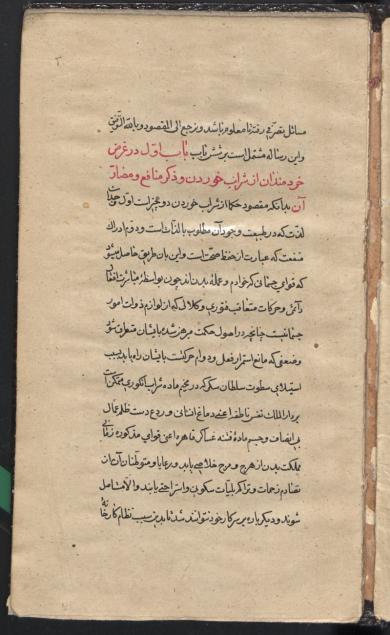 مسائل تصرّفی رفته تا معلوم باشد و نرجع الی المقصود و بالله التوفیق
و این رساله مشتمل است بر شش باب باب اوّل در غرض
خردمندان از شراب خوردن و ذکر منافع و مضارّ
آن بدانکه مقصود حکما از شراب خوردن دو چیز است اوّل حصول
لذت که در طبیعت وجود آن مطلوب بالذات است و دوم ادراک
منفعت که عبارت از حفظ صحّت است و این بان طریق حاصل میشود
که قوای جسمانی که خوادم و عمله بدن اند چون بواسطهٔ مباشرت افعال
دائمی و حرکات متعاقب فتوری و کلالی که از لوازم ذوات امور
جسمانیست چنانچه در اصول حکمت مبرهن شده بایشان متطرق شود
و ضعفی که مانع استمرار فعل و دوام حرکتست بایشان راه یابد بسبب
استیلای سطوت سلطان سکر که در مخیم ماده شراب انگوری متمکن است
بر دار الملک نفس ناطقه اعنی دماغ انسانی و ردع دست ظلم عمال
بی انصاف و حسم مادهٔ فتنه عساکر قاهره اعنی قوای مذکوره زمانی
مملکت بدن از هرج و مرج خلاصی یابد و رعایا و متوطنان آن از
تصادم زحمات و تراکم بلیّات سکون و استراحتی یابند و الامتثامل
شوند و دیگر باره بر سر کار خود توانند شد تا بدین سبب نظام کارخانهٔ